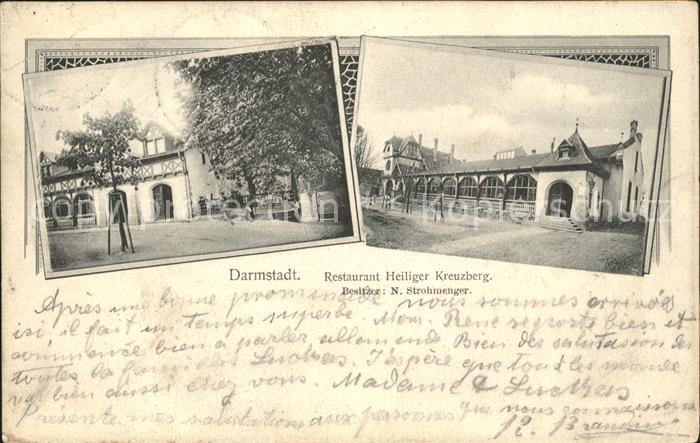 Darmstadt. Restaurant Heiliger Kreuzberg.
Besitzer: N. Strohmenger.
Après une bonne promenade nous sommes arrivés
isi il fait un temps superbe. Mon René se porte bien et
commence bien a parler allemende Bien des salutasion de
toutes la Luckas. J'espère que tout les monde
va bien aussi chez vous. Madame Luckas
présente mes salutation aux personnes que nous connaissons